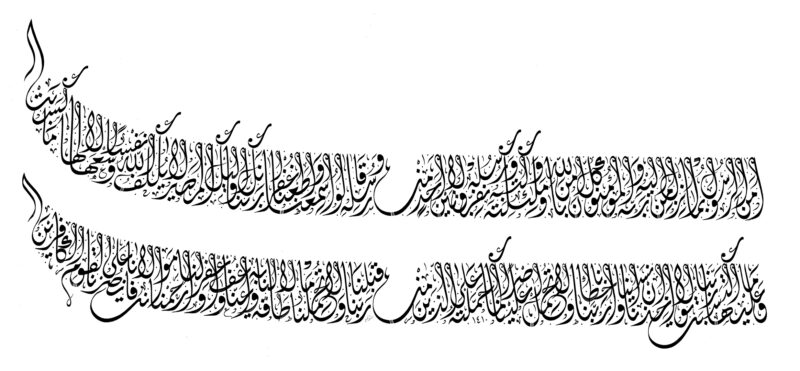 آمن الرسول بما أنزل إليه من ربه والمؤمنون كل آمن بالله وملائكته وكتبه ورسله لا نفرق بين أحد من رسله وقالوا سمعنا وأطعنا غفرانك ربنا وإليك المصير لا يكلف الله نفسا إلا وسعها لها ما كسبت
وعليها ما اكتسبت ربنا لا تؤاخذنا إن نسينا أو أخطأنا ربنا ولا تحمل علينا إصرا كما حملته على الذين من قبلنا ربنا ولا تحملنا ما لا طاقة لنا به واعف عنا واغفر لنا وارحمنا أنت مولانا فانصرنا على القوم الكافرين
١٤١٠